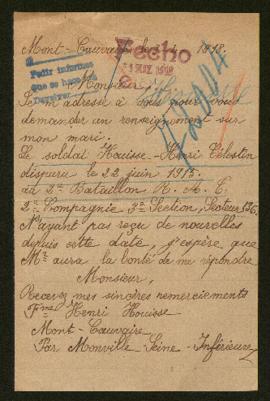 Mont-Cauvaire le 1918.
Fecho
Pedir informes
que se hace
Monsieur
Je m'adresse à vous pour vous
demander un renseignement sur
mon mari.
Le soldat Houisse-Henri Célestin
disparu le 22 juin 1915.
au 2e Bataillon
2e Compagnie 3e Section, Secteur
N'ayant pas reçu de nouvelles
depuis cette date, j'espère que
Mr aura la bonté de me répondre
Monsieur,
Recevez mes sincères remerciements
Fme Henri Houisse
Mont-Cauvaire
Par Monville Seine-Inférieure